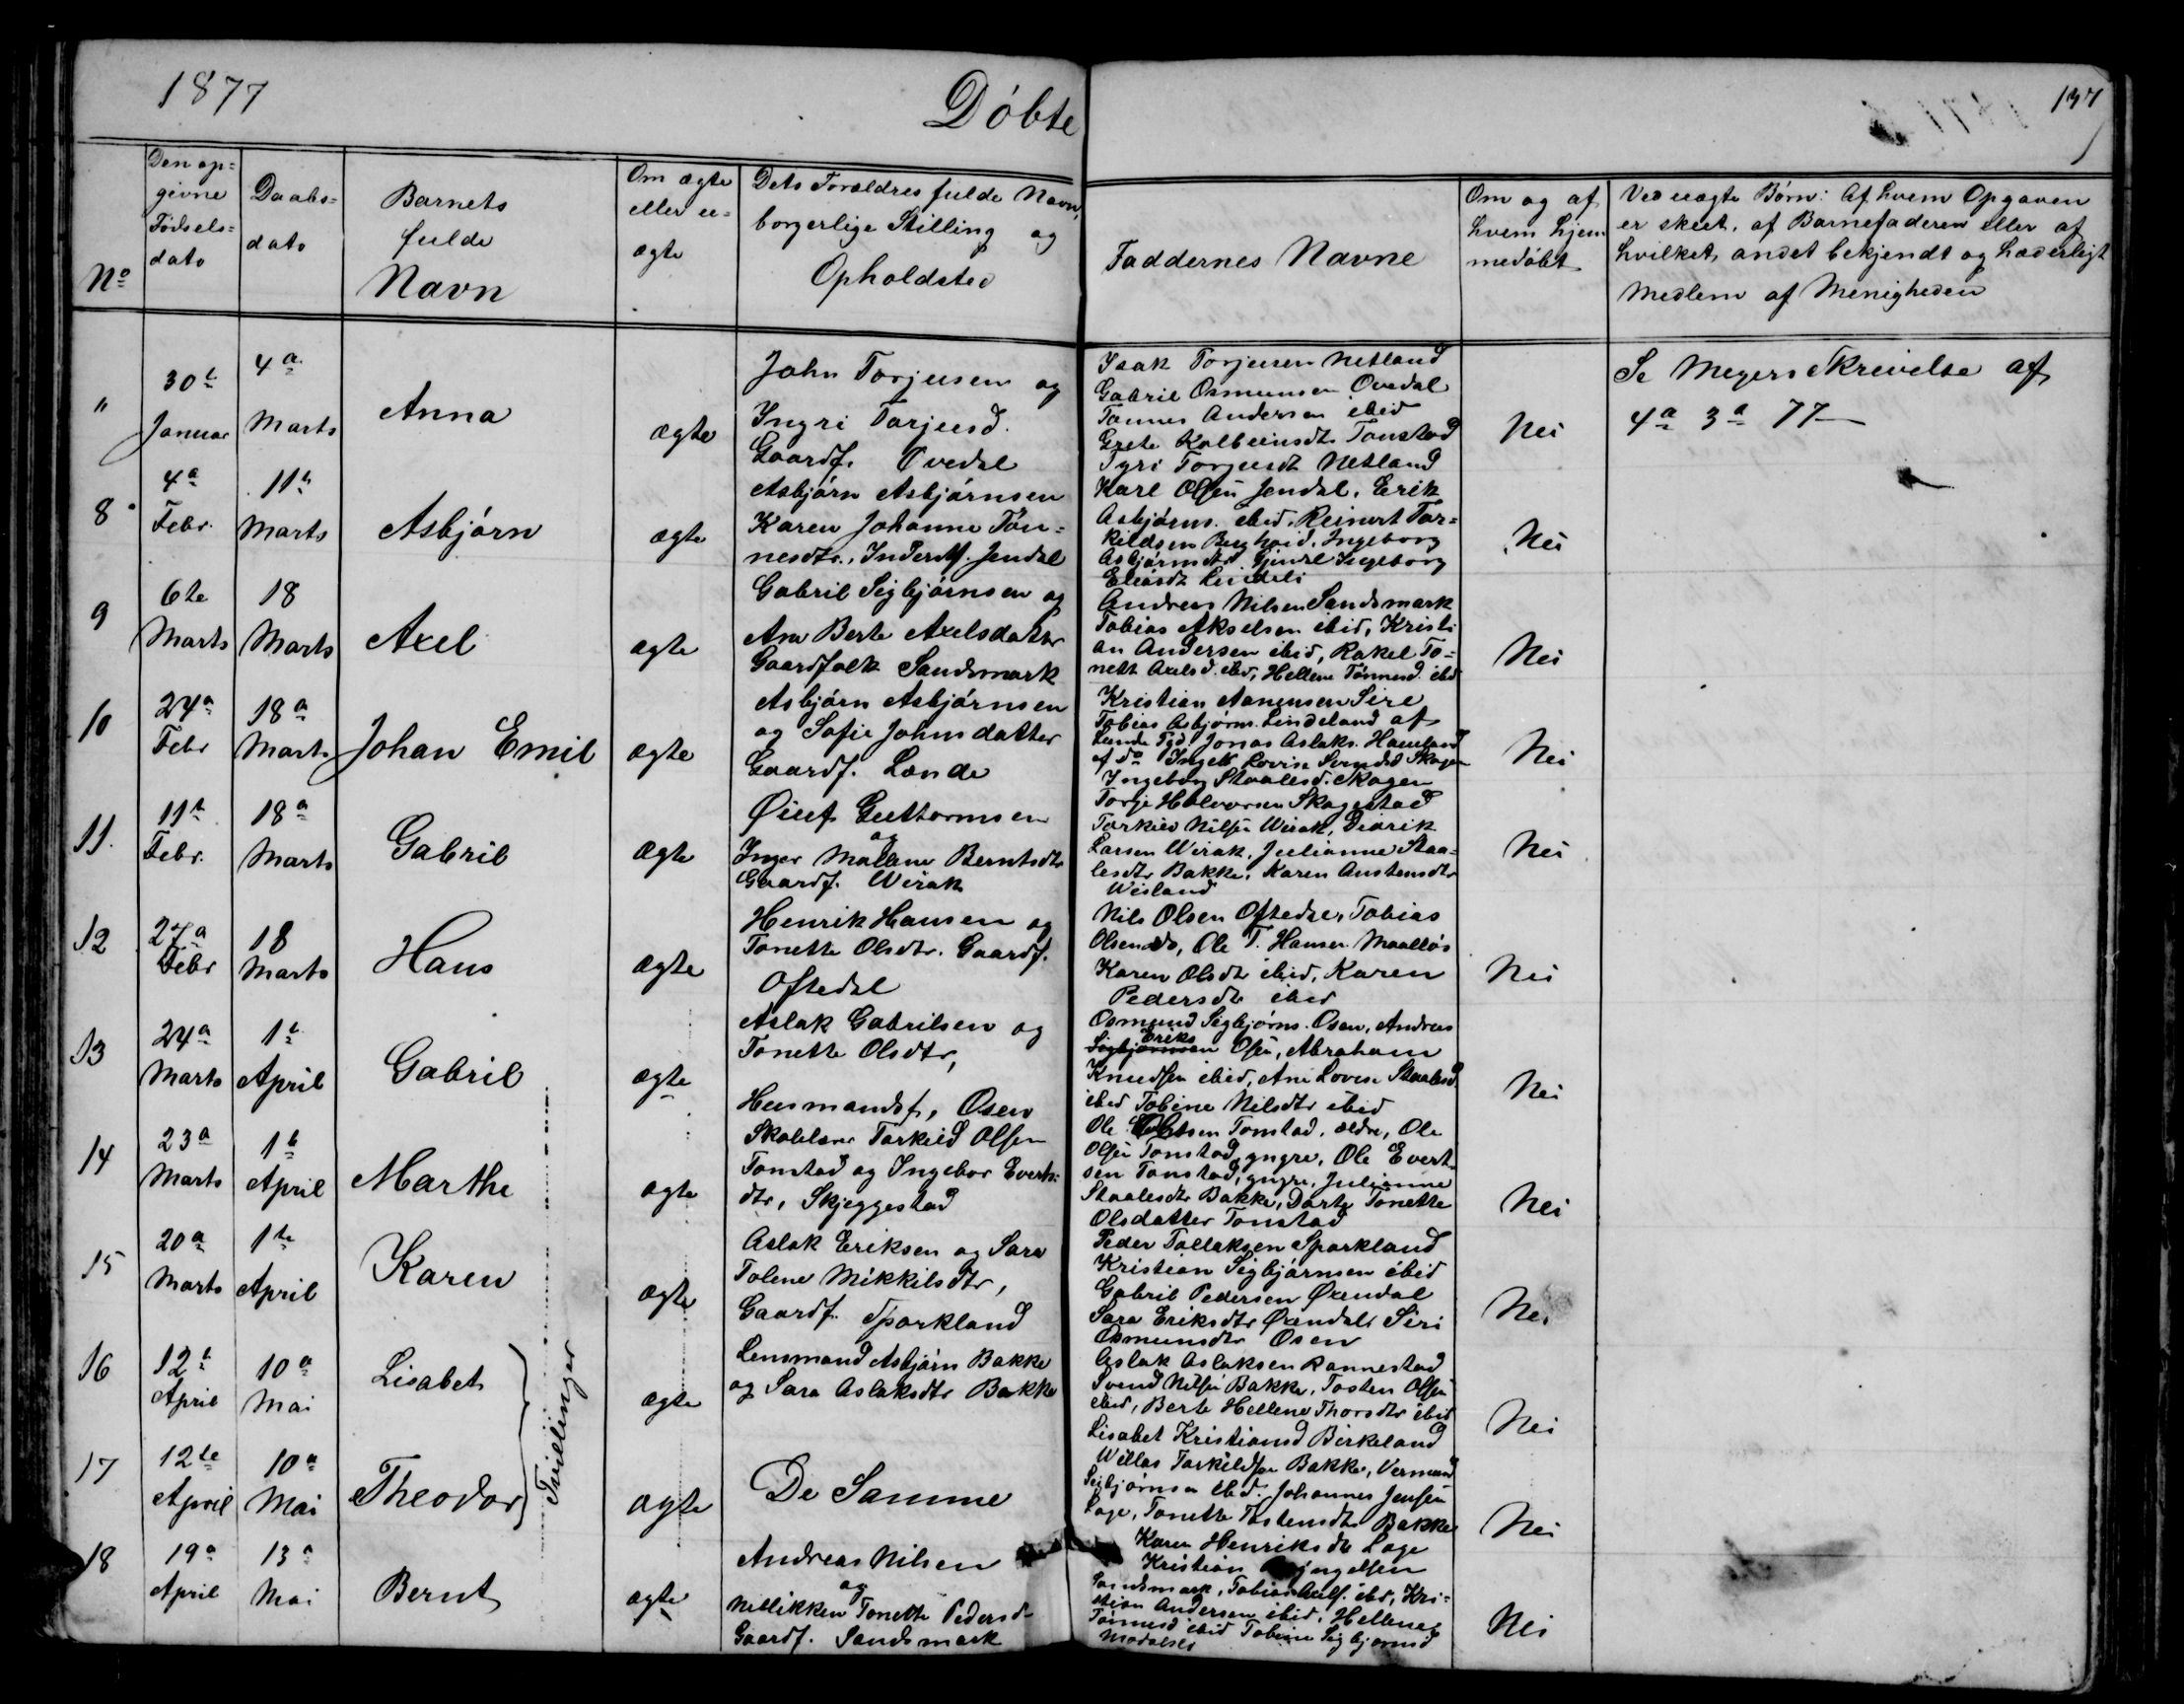 1877
Döbte
137
No
Den op=
givne
Födsels=
dato
Daabs=
dato
Barnets
fulde
Navn
Om ægte
eller u=
ægte
Dets Forældres fulde Navn,
borgerlige Stilling og
Opholdsted
Faddernes Navne
Om og af
hvem hjem
medöbt
Ved uægte Börn: Af hvem Opgaven
er skeet, af Barnefaderen eller af
hvilket andet bekjendt og hæderligt
Medlem af Menigheden
"
30te
Januar
4a
Marts
Anna
ægte
John Torjusen og
Ingri Tarjusd.
Gaardf. Ovedal
Isak Torjusen Netland
Gabriel Osmunsen Ovedal
Tønnes Andersen ibid
Grete Kolbeinsdt. Tonstad
Syri Torjusdt Netland
Nei
Se Meyers Skrivelse af
4a 3a 77
8
4a
Febr.
11te
Marts
Asbjörn
ægte
Asbjörn Asbjörnsen
Karen Johanne Tön=
nesdtr., Inderstf. Jendal
Karl Olsen Jendal, Erik
Asbjörns. ibid, Reinert Tor=
kildsen Bergheid, Ingeborg
Asbjörnsdtr. Gjendal Ingeborg
Eliasdt Lindeli
Nei
9
6te
Marts
18
Marts
Axel
ægte
Gabril Sigbjörnsen og
Ane Berte Axelsdatter
Gaardfolk Sandsmark
Andreas Nilsen Sandsmark
Tobias Akselsen ibid, Kristi
an Andersen ibid, Rakel To=
nett Axelsd. ibid, Hellene Tönnesd. ibid
Nei
10
24a
Febr
18a
Marts
Johan Emil
ægte
Asbjörn Asbjörnsen
og Sofie Johnsdatter
Gaardf. Lande
Kristian Aanensen Sire
Tobias Asbjörns. Lindeland af
Lunde Tgd. Jonas Aslaks. Haneland
af do Ingeb Lovise Svendsd Skagen
Ingeborg Staalesd. Skagen
Nei
11.
11te
Febr.
18a
Marts
Gabril
ægte
Øiuf Guttormsen
og
Inger Malene Berntsdtr
Gaardf. Wirak
Torje Halvorsen Skagestad
Torkild Nilsen Wirak, Didrik
Larsen Wirak, Julianne Staa=
lesdtr Bakke, Karen Austensdtr
Weisland
Nei
12
27a
Febr
18
Marts
Hans
ægte
Henrik Hansen og
Tonette Olsdtr. Gaardf.
Oftedal
Nils Olsen Oftedal, Tobias
Olsen do, Ole T. Hansen Maallös
Karen Olsdtr ibid, Karen
Pedersdtr ibid
Nei
13
24a
Marts
1te
April
Gabril
ægte
Aslak Gabrilsen og
Tonette Olsdtr,
Husmandsf, Osen
Osmund Sigbjörns. Osen, Andreas
Eriks
Sigbjörnsen Osen, Abraham
Knudsen ibid, Ane Lovise Staalesd
ibid Tobine Nilsdtr ibid
Nei
14
23a
Marts
1te
April
Marthe
ægte
Skolelærer Torkild Olsen
Tonstad og Ingebor Everts:
dtr, Skjeggestad
Ole Tonstad, ældre, Ole
Olsen Tonstad, yngre, Ole Evert
sen Tonstad, yngre, Julianne
Staalesdtr Bakke, Dorte Tonette
Olsdatter Tonstad
Nei
15
20a
Marts
1te
April
Karen
ægte
Aslak Eriksen og Sara
Tolene Mikkilsdtr,
Gaardf. Sparkland
Peder Tollaksen Sparkland
Kristian Sigbjörnsen ibid
Gabril Pedersen Øxendal
Sara Eriksdtr Øxendal Siri
Osmunsdtr Osen
Nei
16
12te
April
10a
Mai
Lisabet
Tvillinger
ægte
Lensmand Asbjörn Bakke
og Sara Aslaksdtr Bakke
Aslak Aslaksen Rannestad
Svend Nilsen Bakke, Tosten Olsen
ibid, Berte Hellene Thorsdtr ibid
Lisabet Kristiansd Birkeland
Nei
17
12te
April
10a
Mai
Theodor
ægte
De Samme
Willas Torkildsen Bakke, Vermund
Sigbjörnsen ibid. Johannes Jensen
Loge, Tonette Tostensdtr Bakke
Karen Henriksdtr Loge
Nei
18
19a
April
13a
Mai
Bernt
ægte
Andreas Nilsen
og
Nellikken Tonette Pedersd
Gaardf. Sandsmark
Kristian
Sandsmark, Tobias Axels. ibid, Kri=
stian Andersen ibid, Hellene
Tönnesd ibid Tobine Sigbjörnsd
Modalsli
Nei